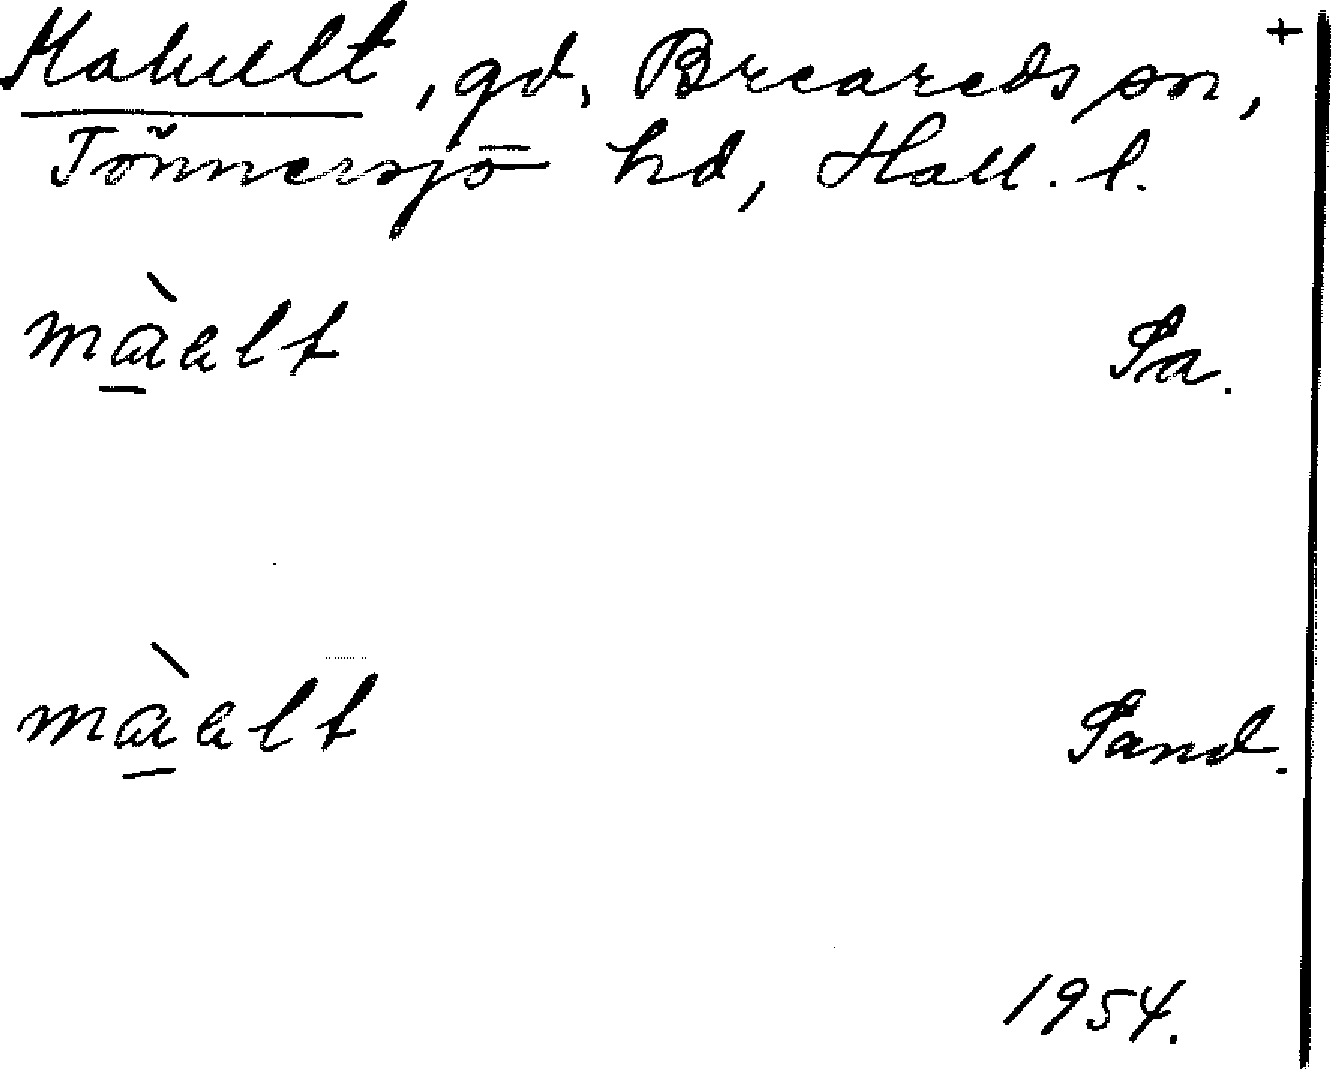 Mahult, gd, Breareds sn, +
Tönnersjö hd, Hall. l.
màalt Sa.
màalt Sand.
1954.